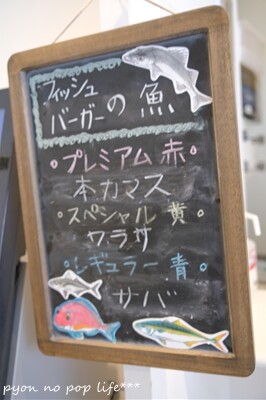 フィッシュ
バーガーの魚
プレミアム 赤
本カマス
スペシャル 黄
ワラサ
レギュラー 青
サバ
pyon no pop life***